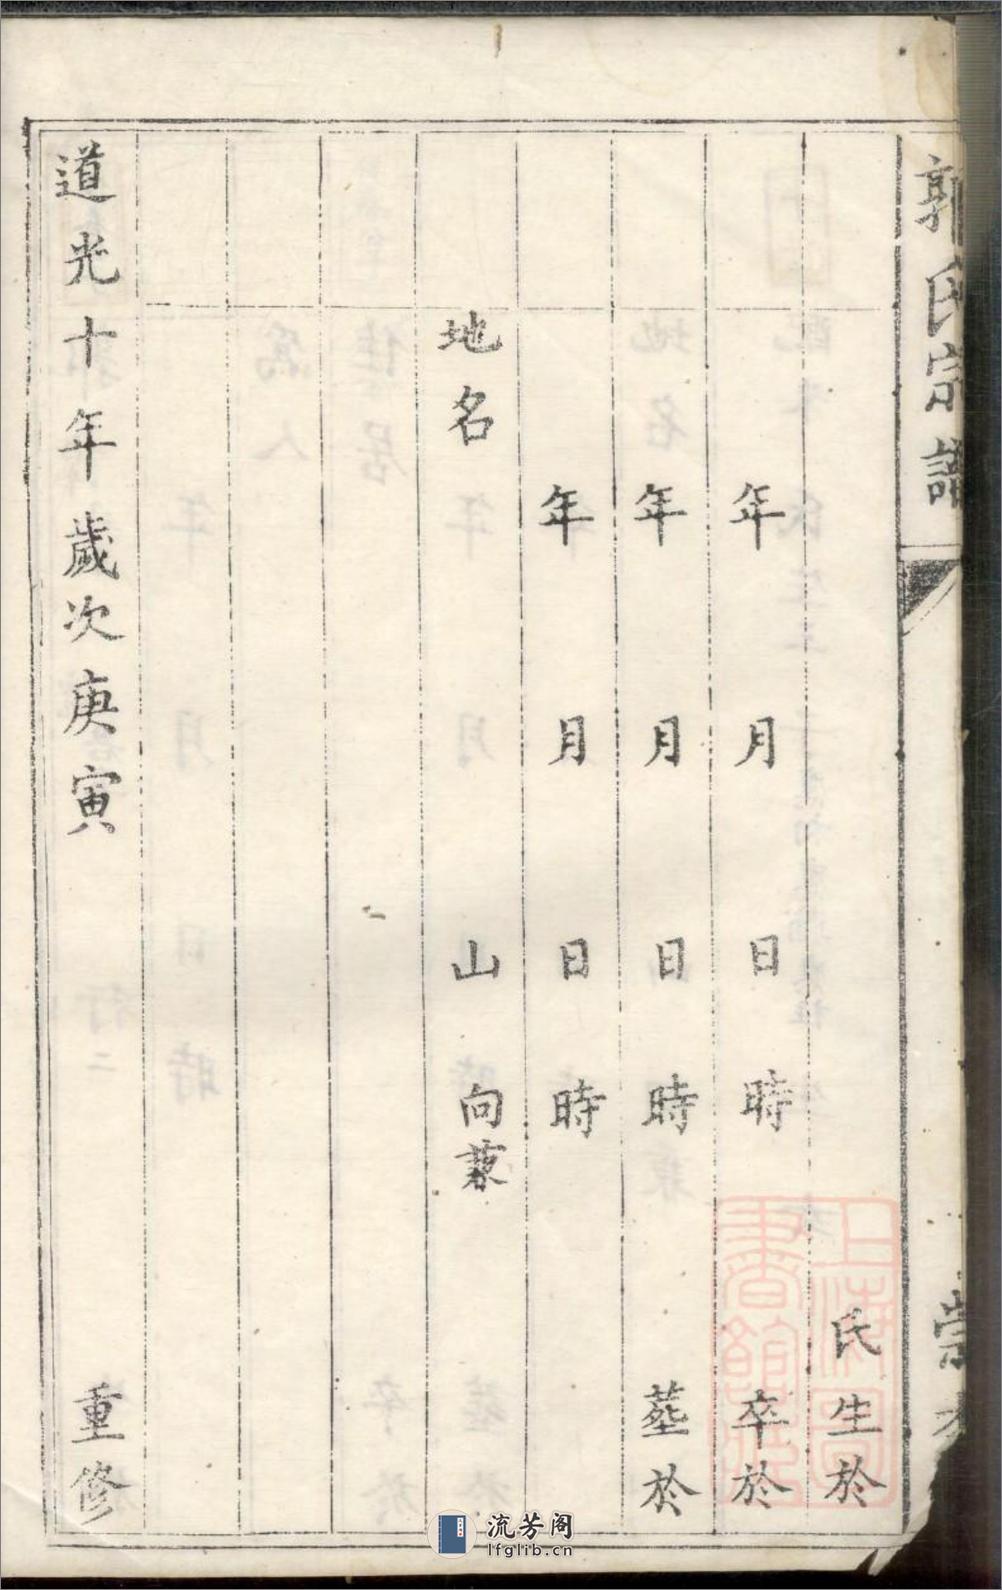 郭氏宗譜
氏生於
年月日時卒於
年月日時塟於
年月日時
地名山向蒹
道光十年歲次庚寅重修
上海圖書館藏
流芳阁
lfglib.cn